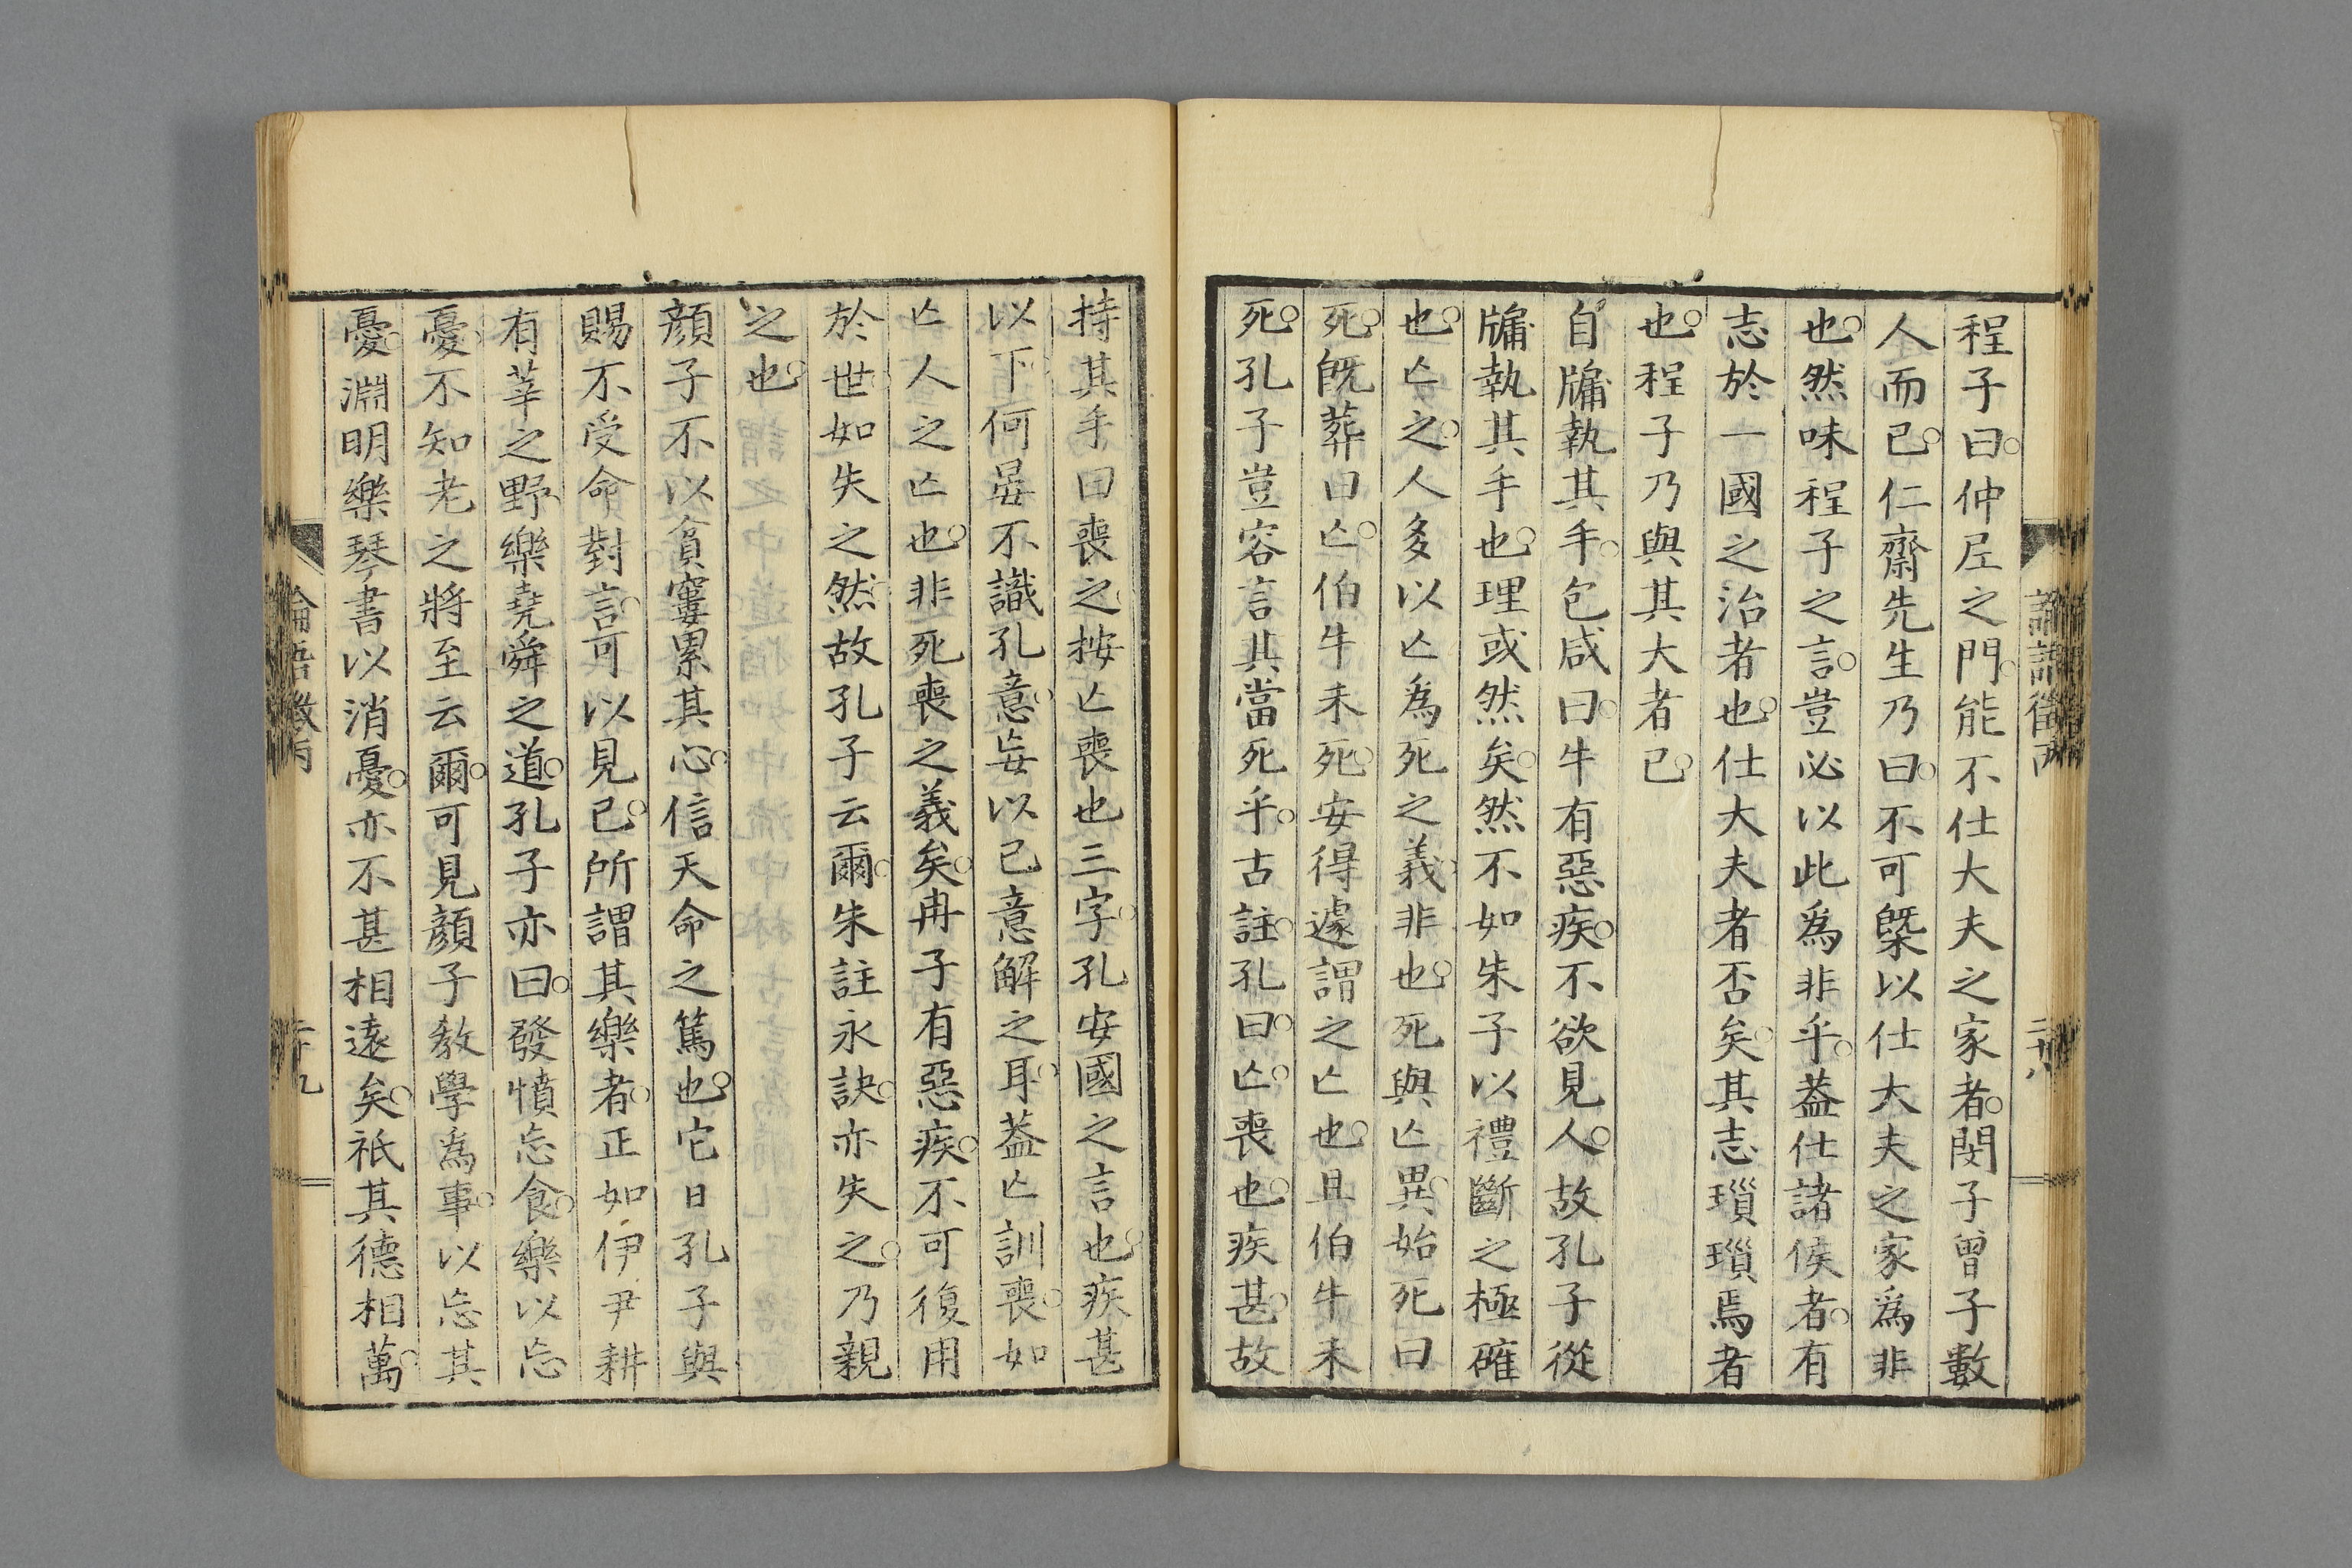 程子曰仲尼之門能不仕大夫之家者閔子曾子數
人而已仁齋先生乃曰不可槩以仕大夫之家爲非
也然味程子之言豈必以此爲非乎葢仕諸侯者有
志於一國之治者也仕大夫者否矣其志瑣瑣焉者
也程子乃與其大者已
自牖執其手包咸曰牛有惡疾不欲見人故孔子從
牖執其手也理或然矣然不如朱子以禮斷之極確
也亾之人多以亾爲死之義非也死與亾異始死曰
死既葬曰亾伯牛未死安得遽謂之亾也且伯牛未
死孔子豈容言其當死乎古註孔曰亾喪也疾甚故
持其手曰喪之按亾喪也三字孔安國之言也疾甚
以下何晏不識孔意妄以己意解之耳葢亾訓喪如
亾人之亾也非死喪之義矣冉子有惡疾不可復用
於世如失之然故孔子云爾朱註永訣亦失之乃親
之也
顏子不以貧窶累其心信天命之篤也它日孔子與
賜不受命對言可以見已所謂其樂者正如伊尹耕
有莘之野樂堯舜之道孔子亦曰發憤忘食樂以忘
憂不知老之將至云爾可見顏子教學爲事以忘其
憂淵明樂琴書以消憂亦不甚相遠矣祇其德相萬
論語徵丙
二十八
論語徵丙
二十九